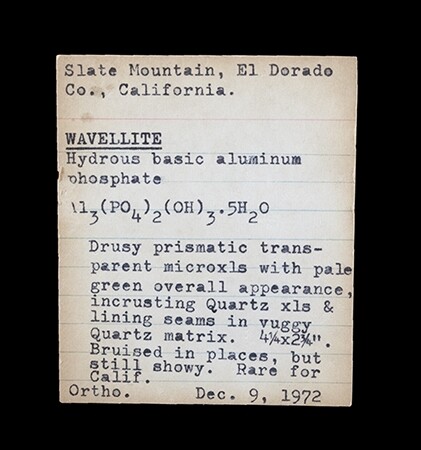 Slate Mountain, El Dorado
Co., California.
WAVELLITE
Hydrous basic aluminum
phosphate
Al3(PO4)2(OH)3.5H2O
Drusy prismatic trans-
parent microxls with pale
green overall appearance,
incrusting Quartz xls &
lining seams in vuggy
Quartz matrix. 4¼x2¾".
Bruised in places, but
still showy. Rare for
Calif.
Ortho. Dec. 9, 1972